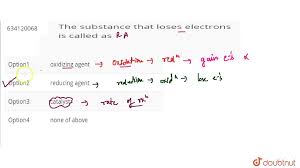 634120068
The substance that loses electrons
is called as RA
Option1 oxidizing agent → oxidation → redⁿ → gain e⁻s ×
Option2 reducing agent → reduction → oxidⁿ → loss e⁻s
Option3 catalyst → rate of rxⁿ
Option4 none of above
doubtnut